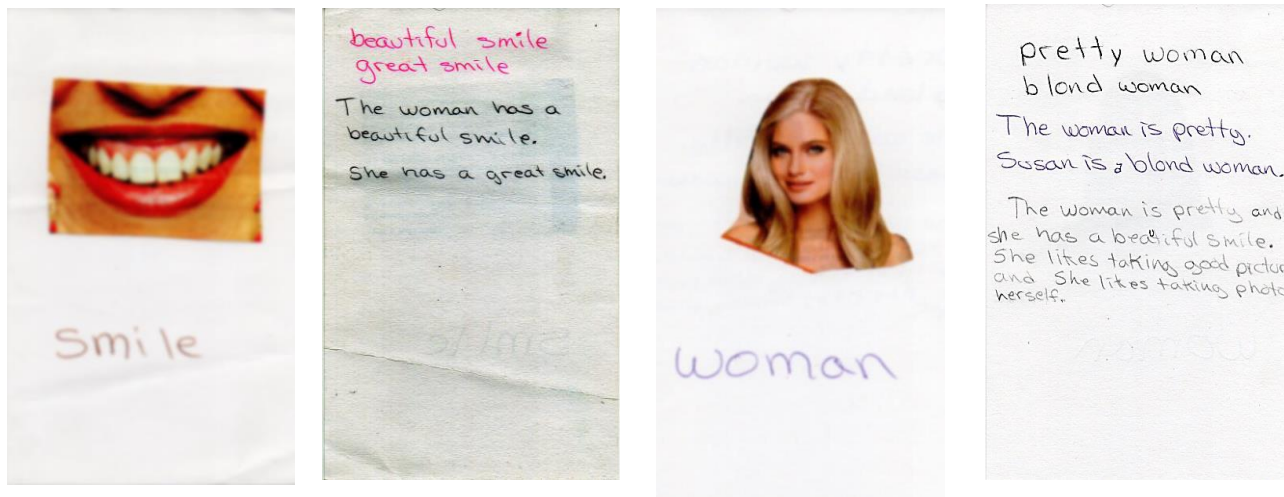 smile
beautiful smile
great smile
The woman has a
beautiful smile.
She has a great smile.
woman
pretty woman
blond woman
The woman is pretty.
Susan is a blond woman.
The woman is pretty and
she has a beautiful smile.
She likes taking good
and She likes taking
herself.